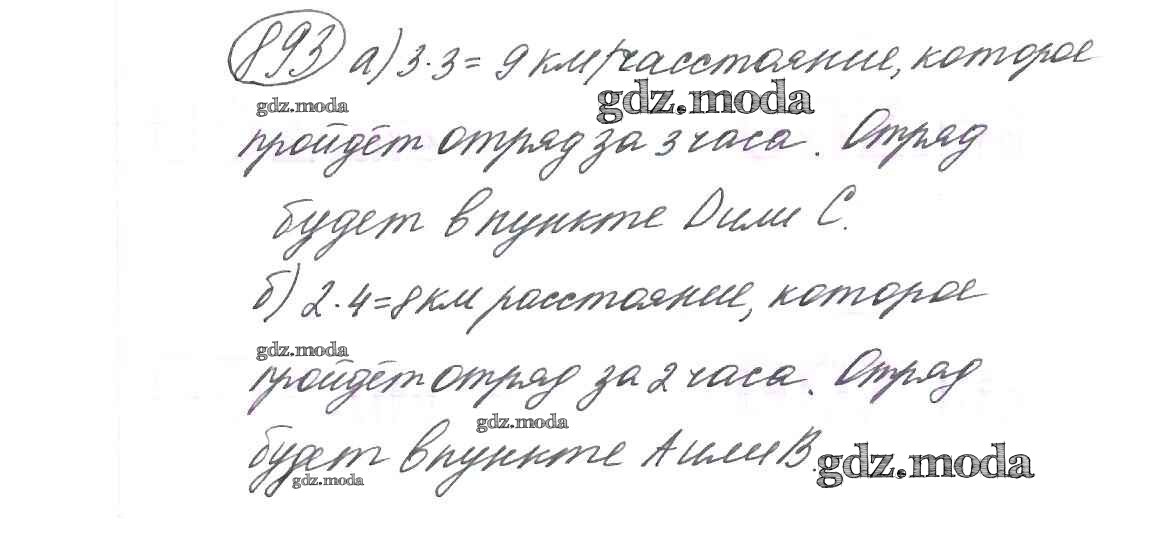 893 а) 3·3= 9 км расстояние, которое
gdz.moda
gdz.moda
пройдёт отряд за 3 часа. Отряд
будет в пункте D или C.
б) 2·4=8 км расстояние, которое
gdz.moda
пройдёт отряд за 2 часа. Отряд
gdz.moda
будет в пункте A или B.
gdz.moda
gdz.moda